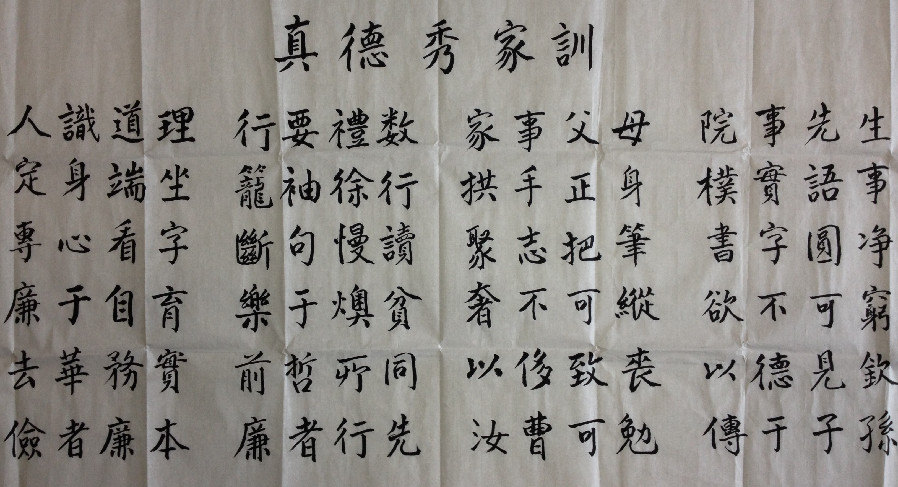 真德秀家訓
人識道理 行要禮数 家事父母 院事先生
定身端坐 籠袖徐行 拱手正身 樸實語事
專心看字 斷句慢讀 聚志把筆 書字圓净
廉于自育 樂于燠貧 奢不可縱 欲不可窮
去華務實 前哲所同 以侈致喪 以德見欽
儉者廉本 廉者行先 汝曹可勉 傳于子孫